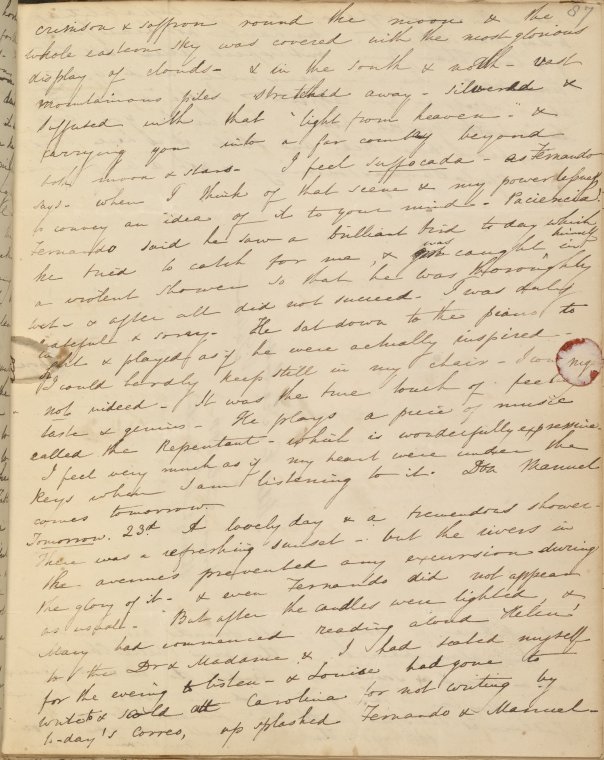 87
crimson & saffron round the moon & the
whole eastern sky was covered with the most glorious
display of clouds - & in the south & north - vast
mountainous piles stretched away - silvered &
suffused with that "light from heaven" - &
carrying you into a far country beyond
both moon & stars - I feel suffocada - as Fernando
says - when I think of that scene & my powerlessness
to convey an idea of it to your mind - Paciencia!
Fernando said he saw a brilliant bird today which
he tried to catch for me, & was caught himself in
a violent shower so that he was thoroughly
wet - & after all did not succeed. I was duly
grateful & sorry. He sat down to the piano to
& played as if he were actually inspired -
I could hardly keep still in my chair - I was
not indeed - It was the true touch of feeling
taste & genius - He plays a piece of music
called the Repentant - which is wonderfully expressive -
I feel very much as if my heart were under the
keys when I am listening to it. Don Manuel
comes tomorrow.
Tomorrow. 23d. A lovely day & a tremendous shower -
There was a refreshing sunset - but the rivers in
the avenues prevented any excursion during
the glory of it - & even Fernando did not appear
as usual - But after the candles were lighted, &
Mary had commenced reading aloud "Helen"
to the Dr & Madame & I had seated myself
for the evening to listen - & Louise had gone to
write & scold Carolina for not writing by
to-day's Correo, up splashed Fernando & Manuel -